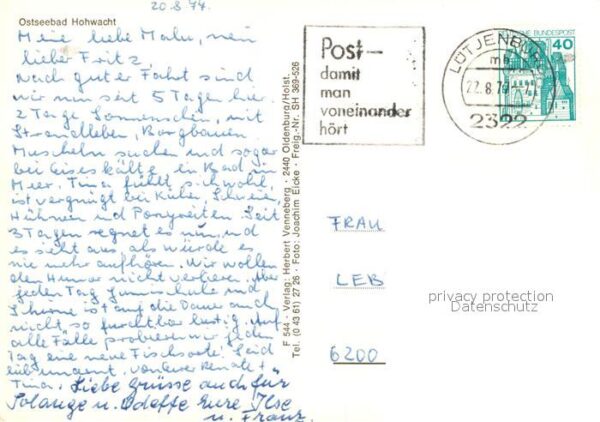 20.8.77.
Ostseebad Hohwacht
Meine liebe Malu, mein
lieber Fritz,
Nach guter Fahrt sind
wir nun seit 5 Tagen hier.
2 Tage Sonnenschein, mit
Strandleben, Burgbauen
Muscheln suchen und sogar
bei Eiseskälte ein Bad im
Meer. Tina fühlt s. wohl,
ist vergnügt bei Kühen, Schweinen,
Hühnern und Ponyreiten. Seit
3 Tagen regnet es nun und
es sieht aus als würde es
nie mehr aufhören. Wir wollen
den Humor nicht verlieren. Aber
jeden Tag Gummistiefel und
Schirme ist auf die Dauer auch
nicht so furchtbar lustig. Auf
alle Fälle probieren wir jeden
Tag eine neue Fischsorte. Seid
lieb umarmt von Eurer Renate +
Tina.
Liebe Grüsse auch für
Solange u. Odette Eure Ilse
u. Franz
F 544 · Verlag: Herbert Venneberg · 2440 Oldenburg/Holst.
Tel. (0 43 61) 27 26 · Foto: Joachim Eicke · Freig.-Nr. SH 369-526
Post-
damit
man
voneinander
hört
LÜTJENBURG
22.8.77
2322
DEUTSCHE BUNDESPOST
40
FRAU
LEB
6200
privacy protection
Datenschutz